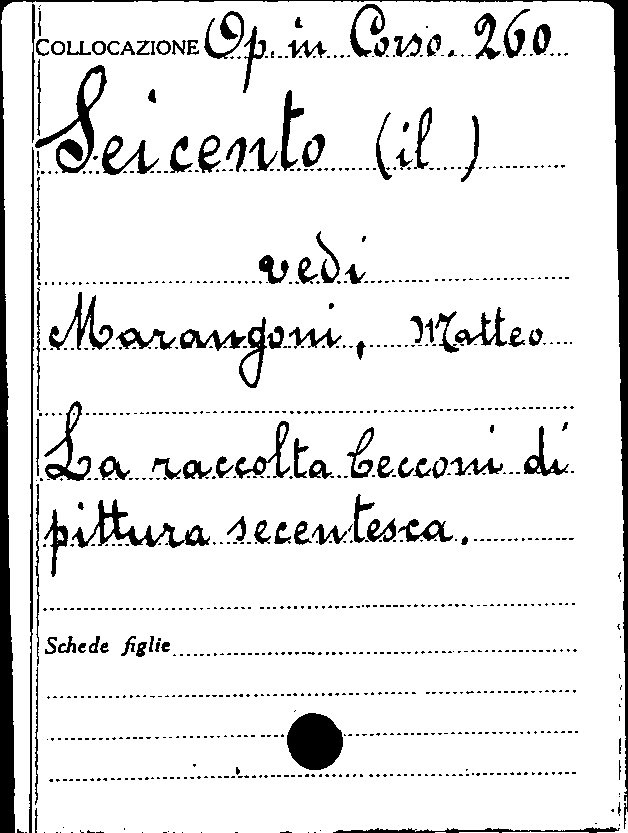 COLLOCAZIONE Op. in Corso. 260
Seicento (il )
vedi
Marangoni, Matteo
La raccolta Cecconi di
pittura secentesca.
Schede figlie